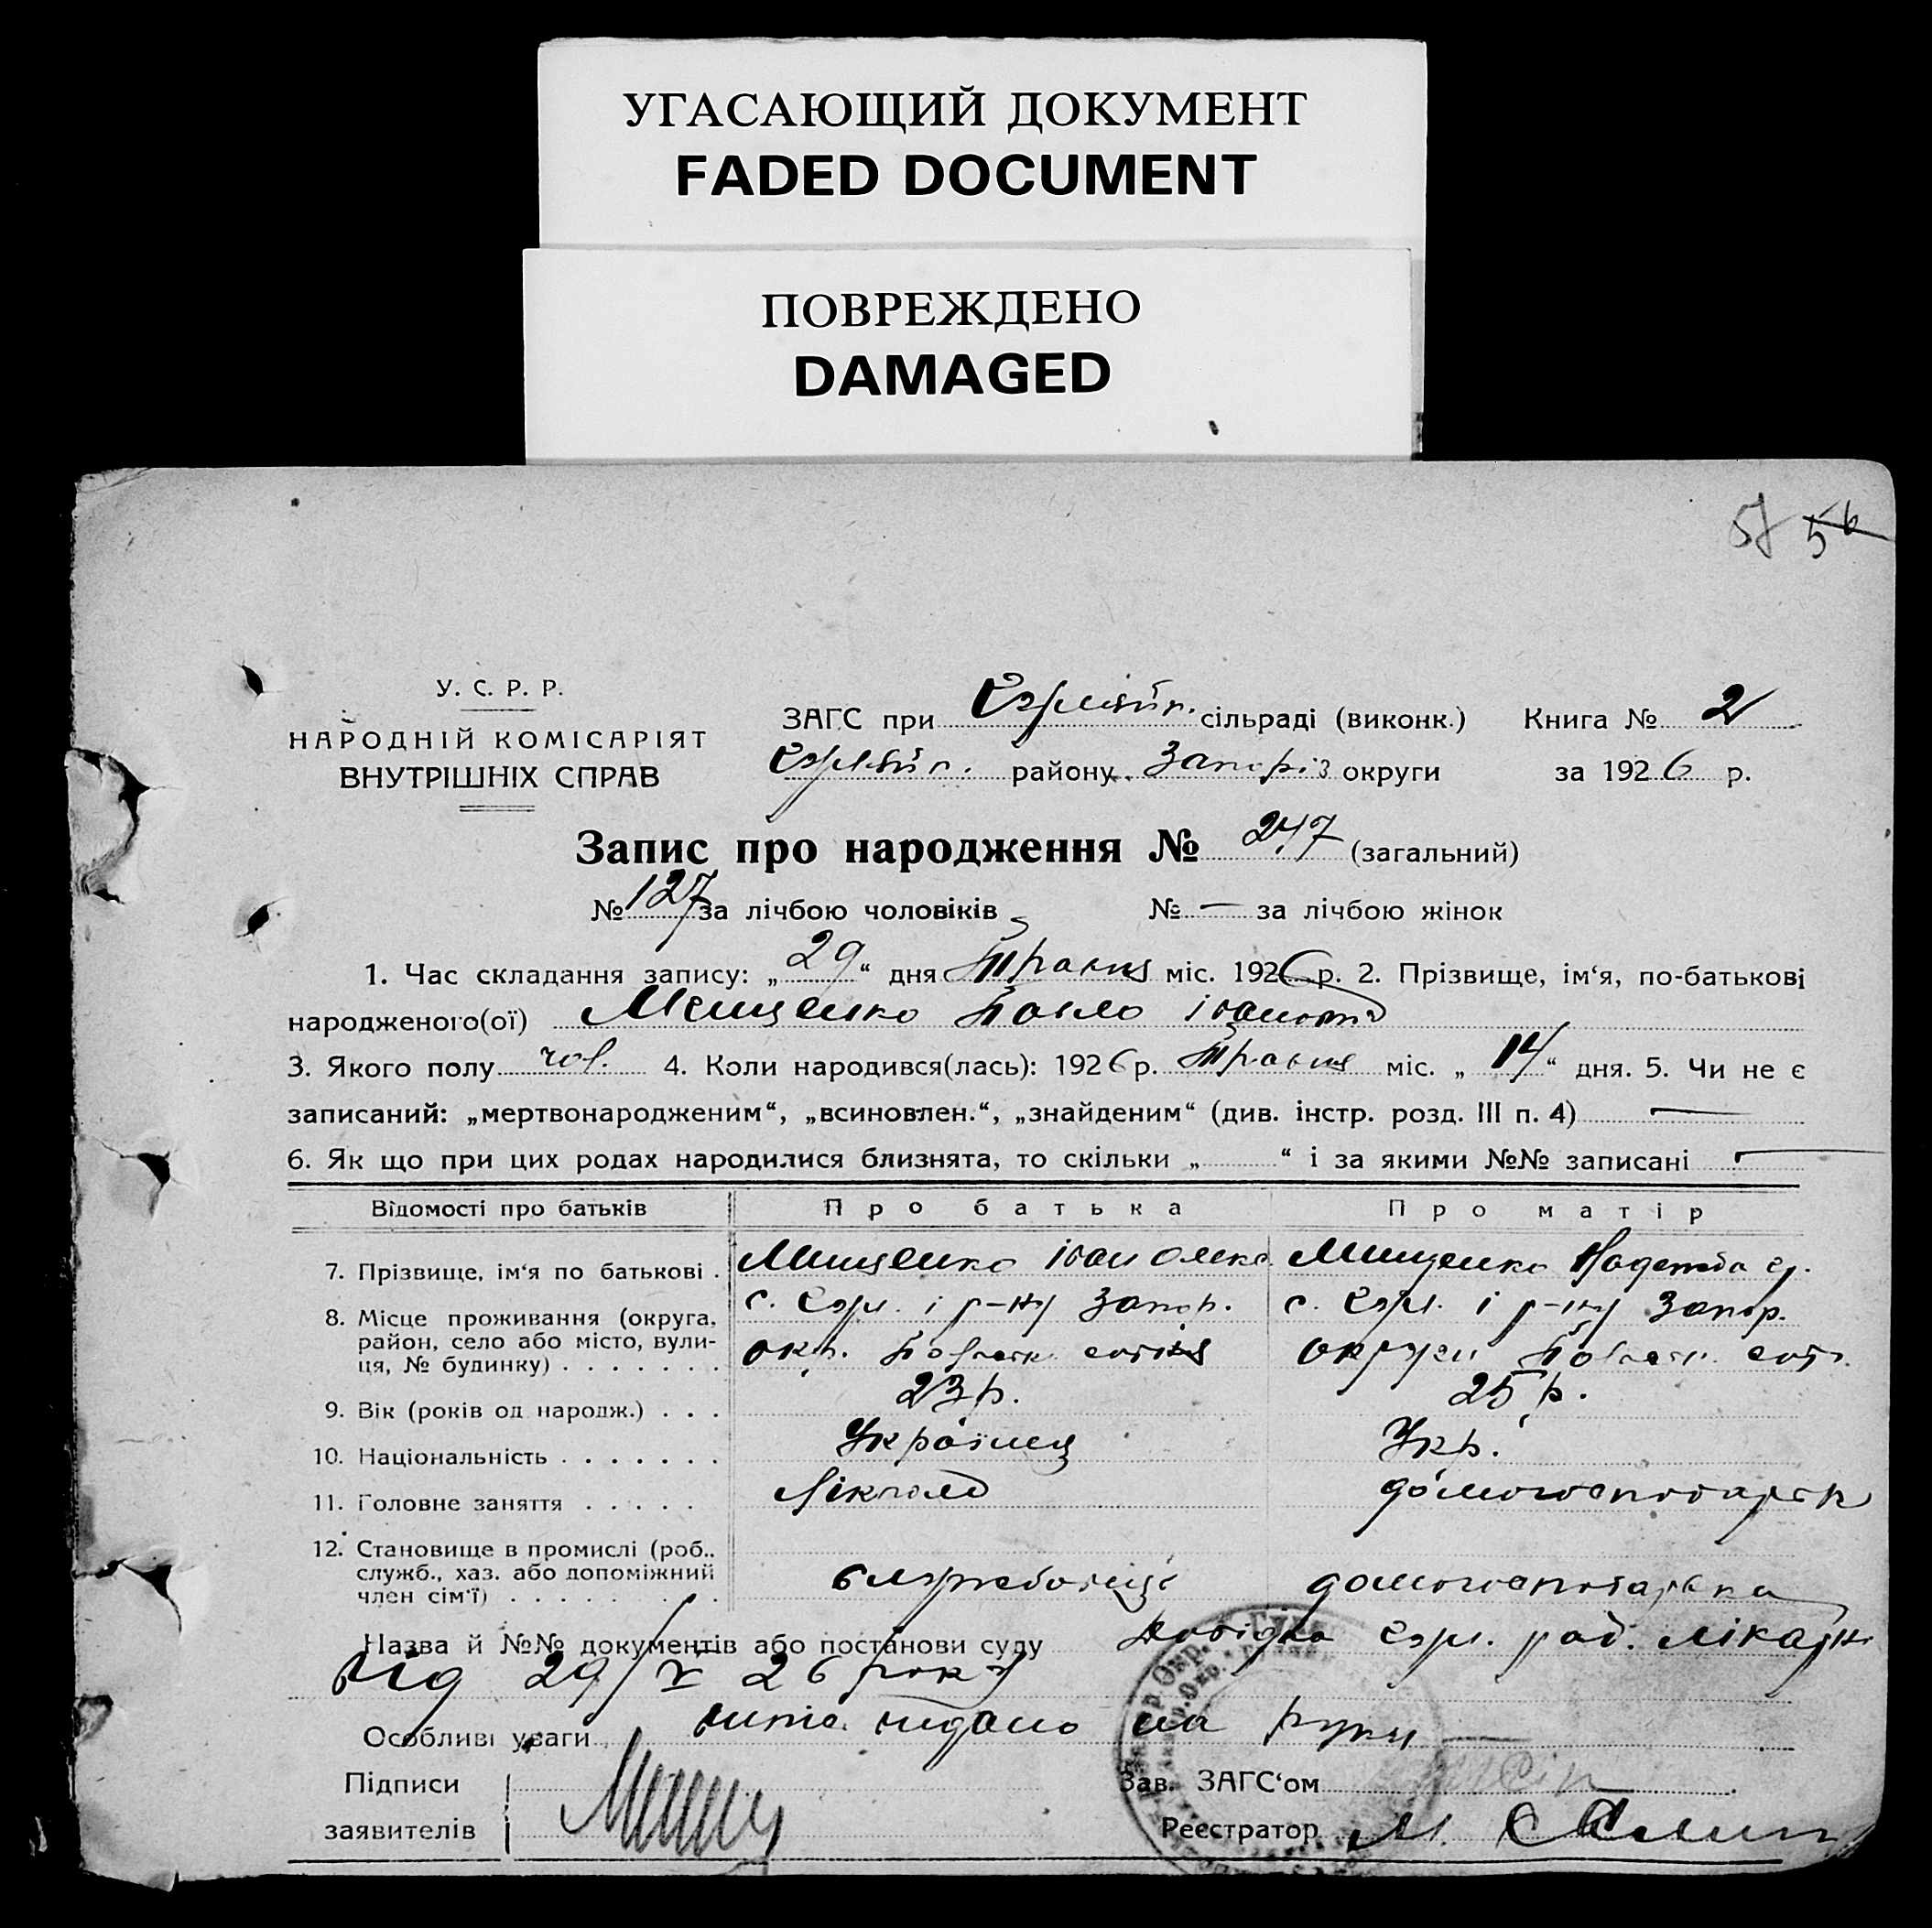 УГАСАЮЩИЙ ДОКУМЕНТ
FADED DOCUMENT
ПОВРЕЖДЕНО
DAMAGED
57 56
У. С. Р. Р.
НАРОДНІЙ КОМІСАРІЯТ
ВНУТРІШНІХ СПРАВ
ЗАГС при сільраді (виконк.) Книга № 2
району Запоріз округи за 1926 р.
Запис про народження № 247 (загальний)
№ 127 за лічбою чоловіків № — за лічбою жінок
1. Час складання запису: „29“ дня Травня міс. 1926 р. 2. Прізвище, ім‘я, по-батькові
народженого(ої) Мищенко Павло Іванович
3. Якого полу чол. 4. Коли народився(лась): 1926 р. Травня міс. „14“ дня. 5. Чи не є
записаний: „мертвонародженим“, „всиновлен.“, „знайденим“ (див. інстр. розд. III п. 4) —
6. Як що при цих родах народилися близнята, то скільки „ “ і за якими №№ записані —
Відомості про батьків Про батька Про матір
7. Прізвище, ім‘я по батькові . Мищенко Іван Олекс. Мищенко Надежда
8. Місце проживання (округа, район, село або місто, вулиця, № будинку) . . . . . . . с. і р-ну Запор. окр. с. і р-ну Запор. округи
9. Вік (років од народж.) . . . 23 р. 25 р.
10. Національність . . . . . . . Українец Укр.
11. Головне заняття . . . . . Лікпом домогосподарк
12. Становище в промислі (роб., служб., хаз. або допоміжний член сім‘ї) . . . . . . . . . службовець домогосподарка
Назва й №№ документів або постанови суду Довідка рад. лікарні
від 29/V 26 року
Особливі уваги видано на руки —
Підписи Зав. ЗАГС‘ом
заявителів Реєстратор М.